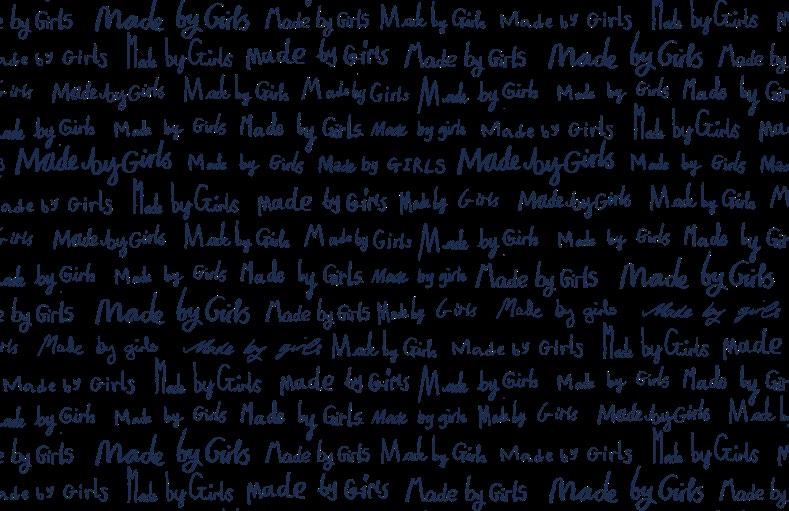 by Girls Made by Girls Made by Girls Made by Girls Made by Girls Made by Girls
Made by Girls Made by Girls Made by Girls Made by Girls Made by Girls Made by
Girls Made by Girls Made by Girls Made by Girls Made by Girls Made by Girls Made by
by Girls Made by Girls Made by Girls Made by girls Made by Girls Made by Girls
Made by Girls Made by Girls Made by GIRLS Made by Girls Made by Girls
Made by Girls Made by Girls Made by Girls Made by Girls Made by Girls Made by Girls
Girls Made by Girls Made by Girls Made by Girls Made by Girls Made by Girls Made by
by Girls Made by Girls Made by Girls Made by girls Made by Girls Made by Girls
by Girls Made by Girls Made by Girls Made by Girls Made by girls Made by girls
Made by girls Made by girls Made by Girls Made by Girls Made by Girls Made
Made by Girls Made by Girls Made by Girls Made by Girls Made by Girls Made by
by Girls Made by Girls Made by Girls Made by girls Made by Girls Made by Girls Made
by Girls Made by Girls Made by Girls Made by Girls Made by Girls Made by Girls
Made by Girls Made by Girls Made by Girls Made by Girls Made by Girls Made by